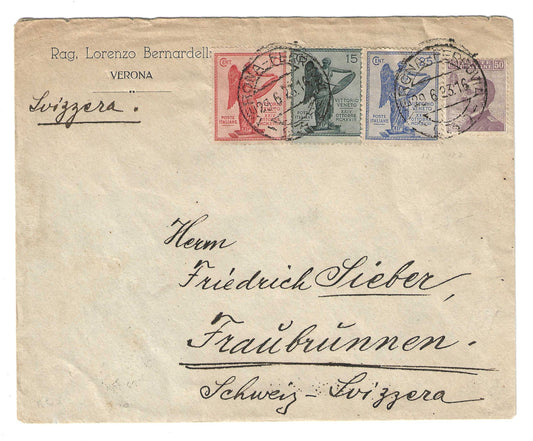 Rag. Lorenzo Bernardelli
VERONA
Svizzera.
CENT
POSTE
ITALIANE
15
VITTORIO
VENETO
OTTOBRE
MCMXVIII
CENT
POSTE
ITALIANE
50
VERONA-FERROVIA
29.6.23.15
Herrn
Friedrich Sieber,
Fraubrunnen.
Schweiz-Svizzera